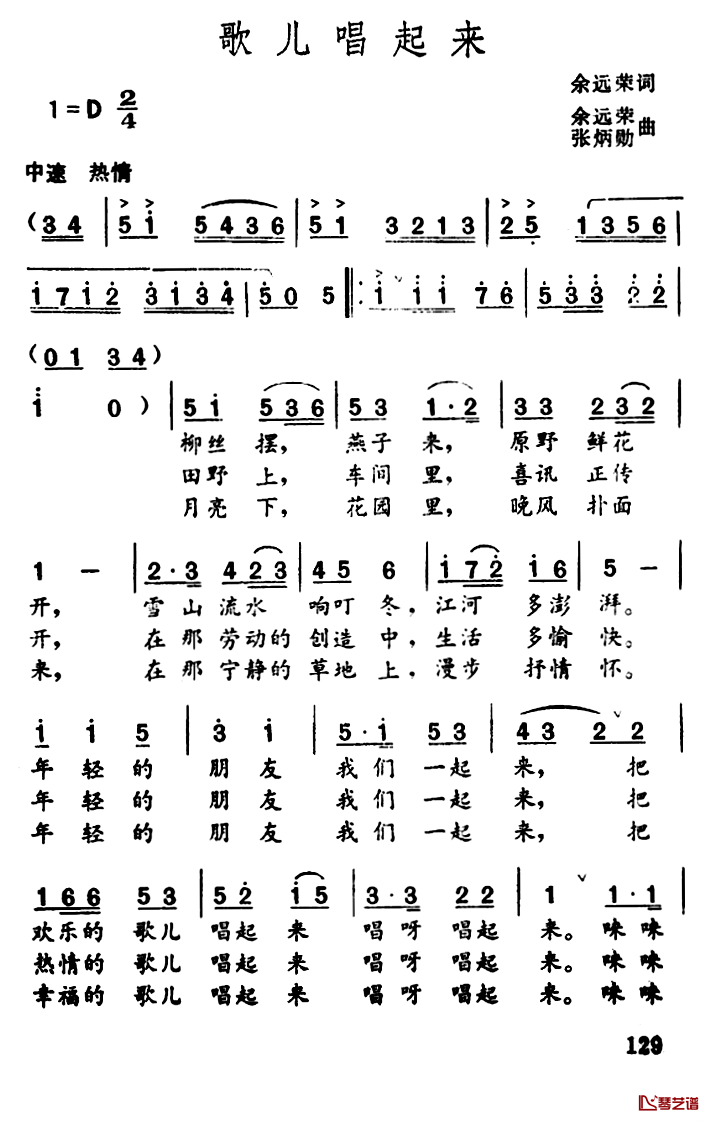 歌儿唱起来
余远荣词
1=D 2/4
余远荣
张炳勋 曲
中速 热情
(3 4 | 5 1 5 4 3 6 | 5 1 3 2 1 3 | 2 5 1 3 5 6 |
1 7 1 2 3 1 3 4 | 5 0 5 ‖: 1 ˅ 1 1 7 6 | 5 3 3 2 2 |
(0 1 3 4)
1 0 ) | 5 1 5 3 6 | 5 3 1·2 | 3 3 2 3 2 |
柳丝摆, 燕子来, 原野鲜花
田野上, 车间里, 喜讯正传
月亮下, 花园里, 晚风扑面
1 – | 2·3 4 2 3 | 4 5 6 | 1 7 2 1 6 | 5 – |
开, 雪山流水 响叮冬, 江河多澎湃。
开, 在那劳动的创造中, 生活多愉快。
来, 在那宁静的草地上, 漫步抒情怀。
1 1 5 | 3 1 | 5·1 5 3 | 4 3 2 ˅ 2 |
年轻的朋友我们一起来, 把
年轻的朋友我们一起来, 把
年轻的朋友我们一起来, 把
1 6 6 5 3 | 5 2 1 5 | 3·3 2 2 | 1 ˅ 1·1 |
欢乐的歌儿唱起来唱呀唱起来。咪咪
热情的歌儿唱起来唱呀唱起来。咪咪
幸福的歌儿唱起来唱呀唱起来。咪咪
129
琴艺谱